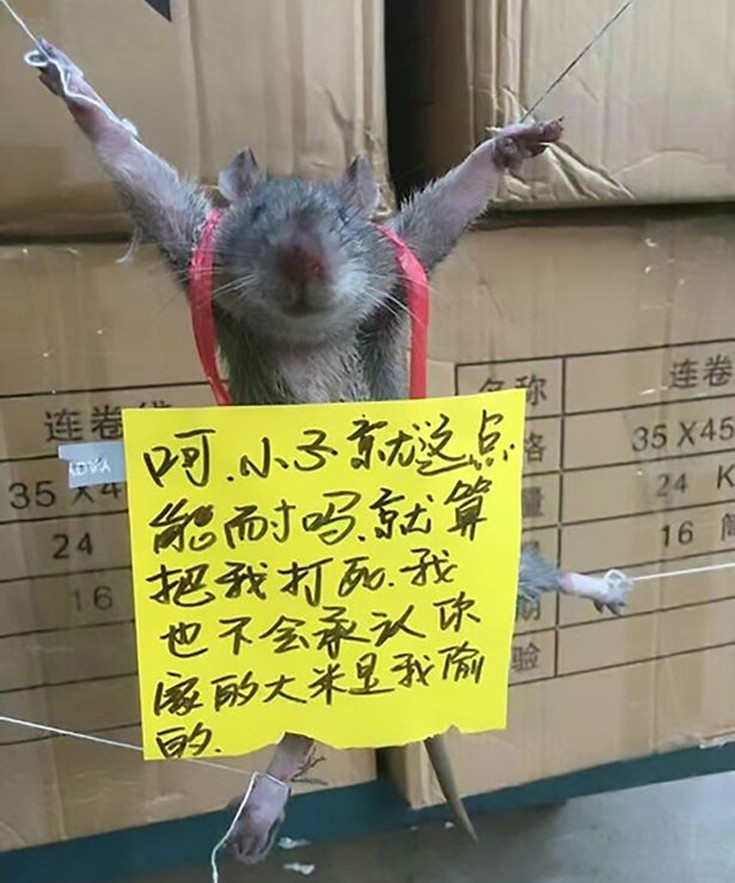 呵.小子就这点
能耐吗.就算
把我打死.我
也不会承认你
家的大米是我偷
的.
连卷袋
35 X 4
24
16
名称
连卷
格
35 X 45
量
24 K
16
验